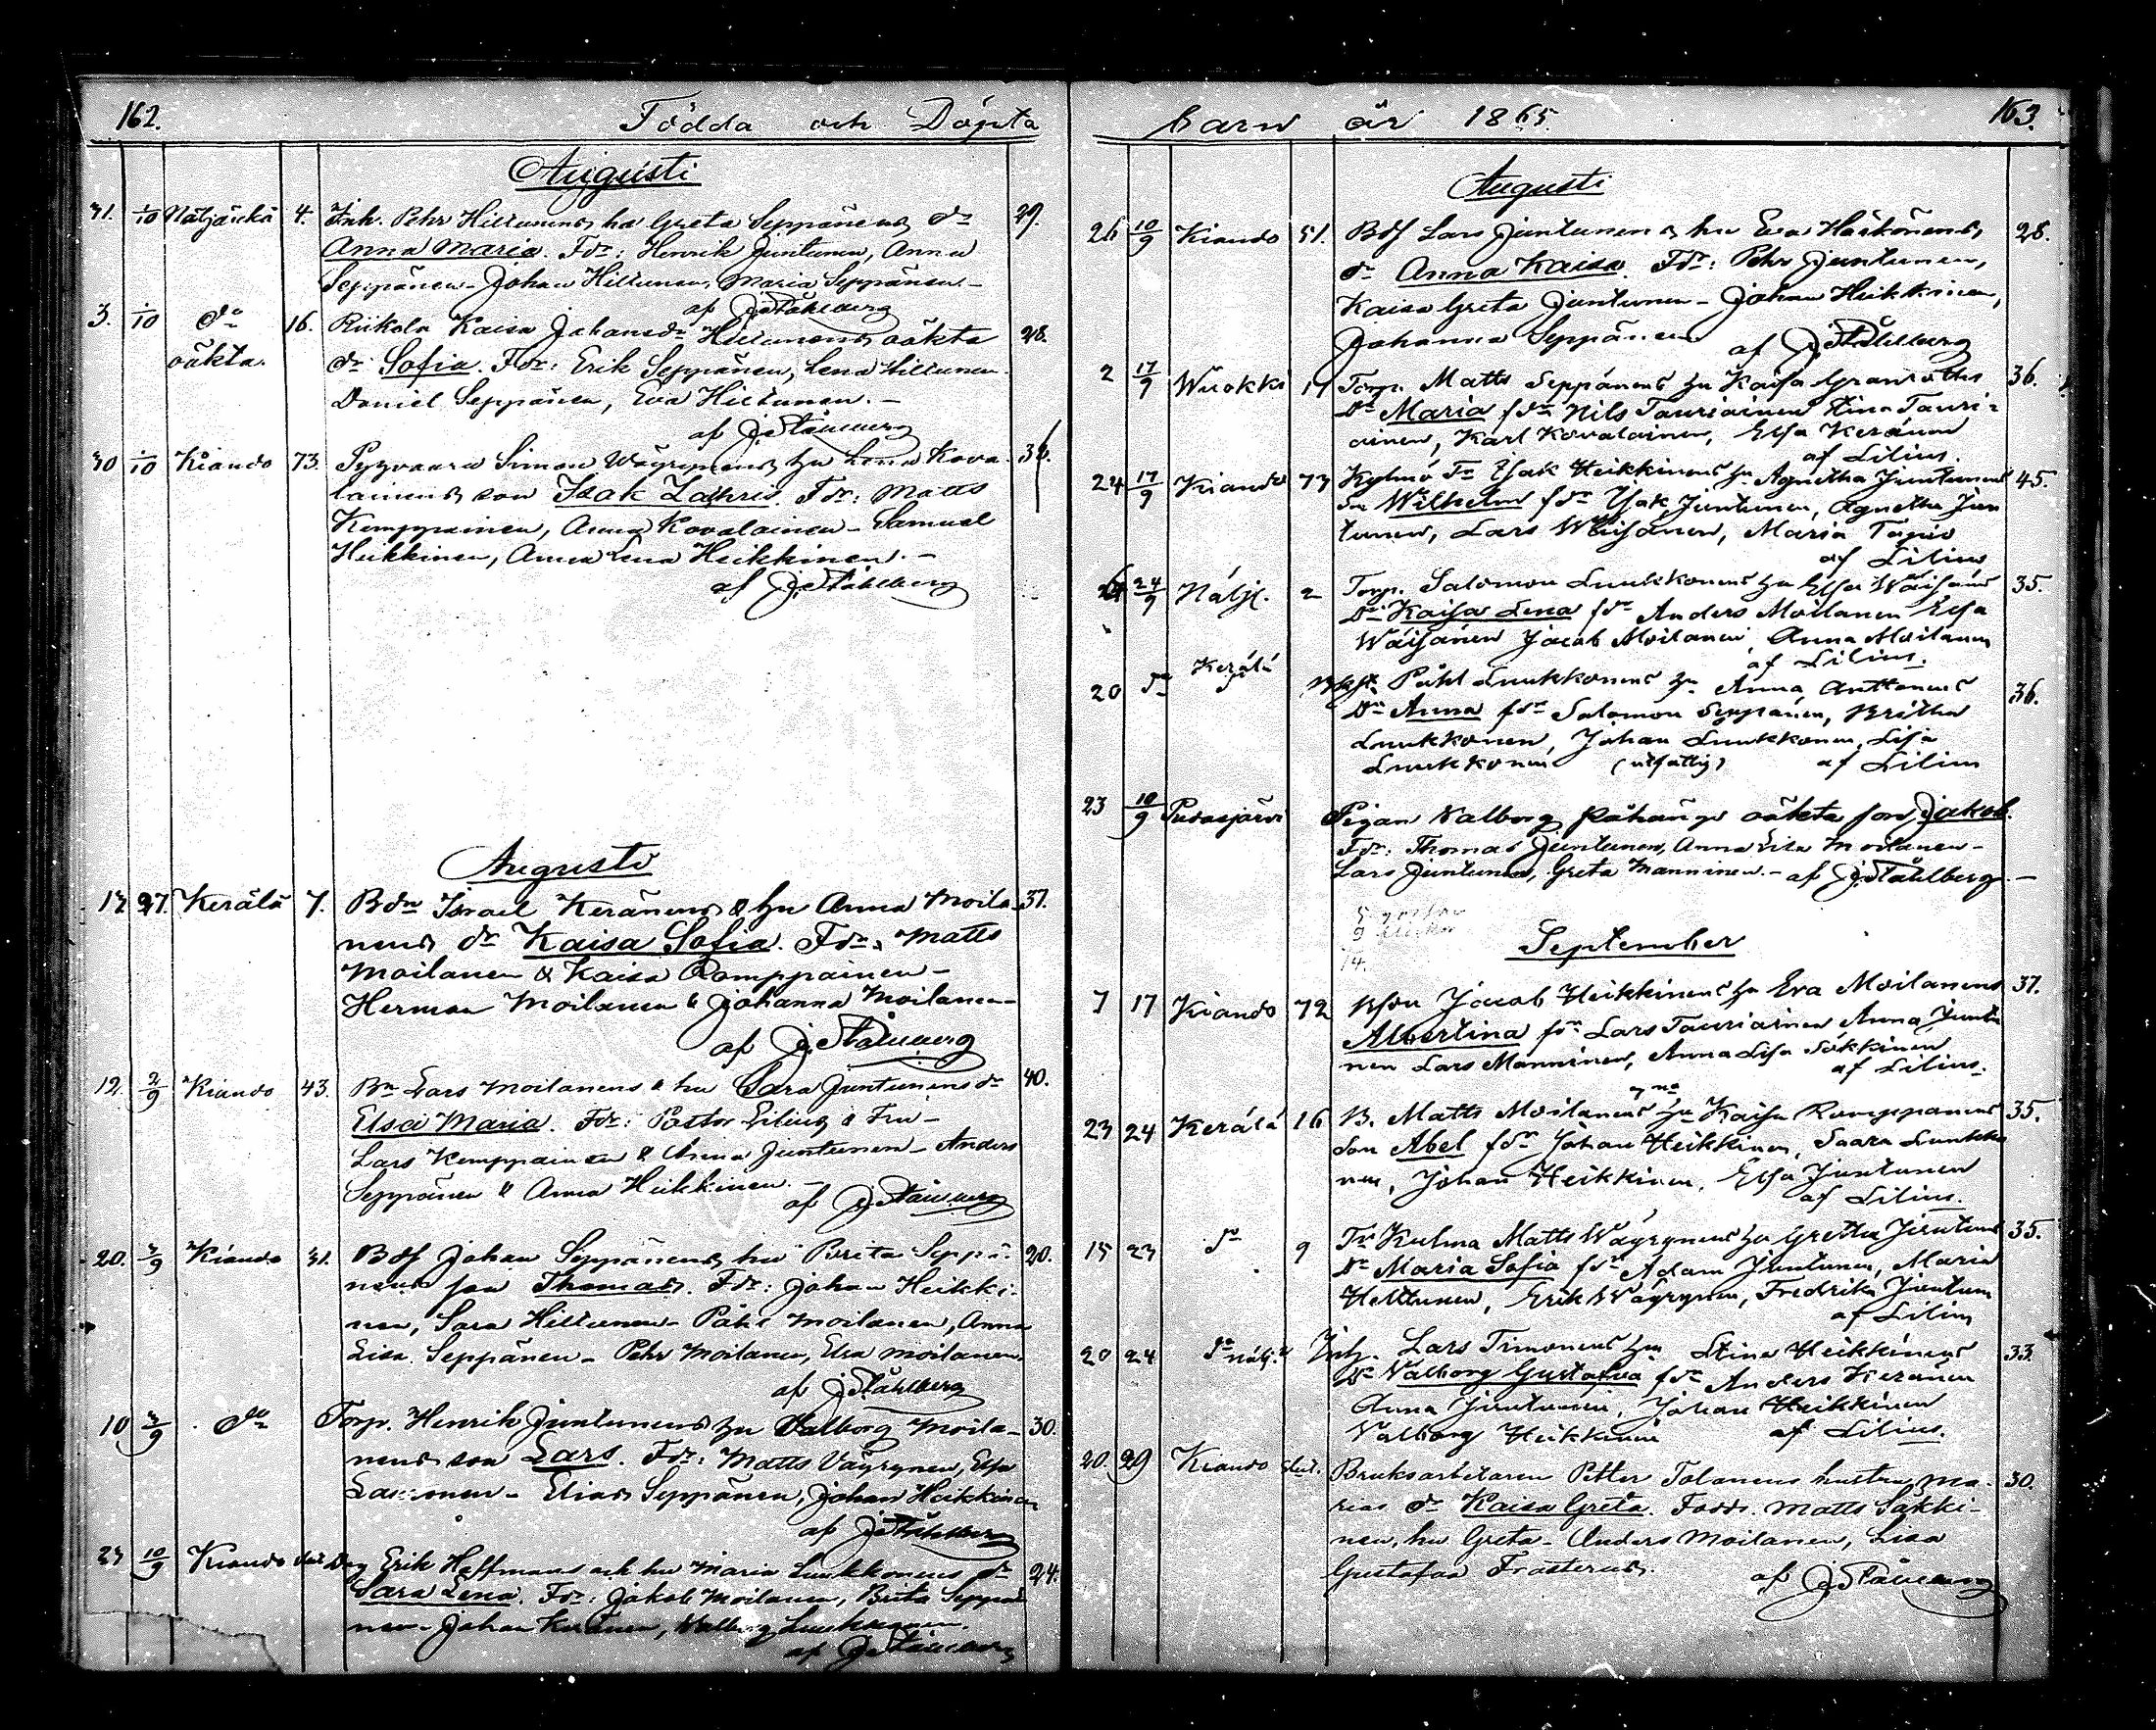 162.
Födda och Döpta
Augusti
31. 1/10 Näljänkä 4. Inh. Pehr Hiltunens hu Greta Seppänens dr 29.
Anna Maria. Fdr: Henrik Juntunen, Anna
Seppänen - Johan Hiltunen, Maria Seppänen. -
af J. Ståhlberg
3. 1/10 do 16. Riikola Kaisa Johansdr Hiltunens oäkta 28.
oäkta. dr Sofia. Fdr: Erik Seppänen, Lena Hiltunen.
Daniel Seppänen, Eva Hiltunen. -
af J. Ståhlberg
30 1/10 Kiando 73. Pyyvaara Simon Wäyrynens hu Lena Kova- 36.
lainens son Isak Zakris. Fdr: Matts
Kemppainen, Anna Kovalainen - Samuel
Heikkinen, Anna Lena Heikkinen. -
af J. Ståhlberg
Augusti
13 27. Kerälä 7. Bdn Israel Keränens & hu Anna Moila- 37.
nens dr Kaisa Sofia. Fdr: Matts
Moilanen & Kaisa Romppainen -
Herman Moilanen & Johanna Moilanen -
af J. Ståhlberg
12. 2/9 Kiando 43. Bn Lars Moilanens & hu Sara Juntunens dr 40.
Elsa Maria. Fdr: Pastor Lilius & Fru -
Lars Kemppainen & Anna Juntunen - Anders
Seppänen & Anna Heikkinen. -
af J. Ståhlberg
20. 3/9 Kiando 31. Bdf Johan Seppänens hu Brita Seppä- 20.
nens son Thomas. Fdr: Johan Heikki-
nen, Sara Hiltunen - Påhl Moilanen, Anna
Lisa Seppänen - Pehr Moilanen, Elsa Moilanen.
af J. Ståhlberg
10 3/9 do Torp. Henrik Juntunens hu Valborg Moila- 30.
nens son Lars. Fdr: Matts Väyrynen, Elsa
- Elias Seppänen, Johan Heikkinen
af J. Ståhlberg
23 10/9 Kiando Erik Hoffmans och hu Maria Luukkonens dr 24.
Sara Lena. Fdr: Jakob Moilanen, Brita Seppä-
nen - Johan Keränen, Valborg Luukkonen.
af J. Ståhlberg
barn år 1865.
163.
Augusti
26 10/9 Kiando 51. Bdf Lars Juntunens hu Eva Härkönens 28.
dr Anna Kaisa. Fdr: Pehr Juntunen,
Kaisa Greta Juntunen - Johan Heikkinen,
Johanna Seppänen
af J. Ståhlberg
2 17/9 Wuokki 11 Torp. Matts Seppänens hu Kaisa Granroths 36.
Dr Maria fdr Nils Tauriainen Stina Tauri-
ainen, Karl Kovalainen, Elsa Keränen
af Lilius.
24 17/9 Kiando 73 Kylmö Tr Isak Heikkinens hu Agnetha Juntunens 45.
Sn Wilhelm fdr Isak Juntunen, Agnetha Jun
tunen, Lars Wäisänen, Maria Tapio
af Lilius
24/9 Näljk. 2 Torp. Salomon Luukkonens hu Elsa Wäisäns 35.
Dr Kaisa Lena fdr Anders Moilanen Elsa
Wäisänen Jacob Moilanen, Anna Moilanen
af Lilius.
20 do Kerälä Påhl Luukkonens hu Anna Anttonens 36.
Dr Anna fdr Salomon Seppänen, Britha
Luukkonen, Johan Luukkonen, Lisa
Luukkonen (utfattig) af Lilius
23 10/9 Pudasjärvi Pigan Valborg oäkta son Jakob.
Fdr: Thomas Juntunen, Anna Lisa Moilanen -
Lars Juntunen, Greta Manninen. - af J. Ståhlberg. -
September
7 17 Kiando 72 Jacob Heikkinens hu Eva Moilanens 37.
Albertina fdr Lars Tauriainen Anna Juntu
nen Lars Manninen, Anna Lisa Säkkinen
af Lilius.
23 24 Kerälä 16 B. Matts Moilanens hu Kaisa Romppanens 35.
Son Abel fdr Johan Heikkinen, Saara Luukko
nen, Johan Heikkinen, Elsa Juntunen
af Lilius.
15 23 do 9 Tr Kulma Matts Wäyrynens hu Gretha Juntuns 35.
Dr Maria Sofia fdr Adam Juntunen, Maria
Heltunen, Erik Wäyrynen, Fredrika Juntunen
af Lilius
20 24 do Nälj. Inh. Lars Timonens hu Stina Heikkinens 33.
Dr Valborg Gustafva fdr Anders Keränen
Anna Juntunen, Johan Heikkinen
Valborg Heikkinen af Lilius.
20. 29 Kiando slut. Bruksarbetaren Petter Tolanens hustru Ma- 30.
rias dr Kaisa Greta. Faddr. Matts Säkki-
nen, hu Greta - Anders Moilanen, Lisa
Gustafva Frosterus.
af J. Ståhlberg